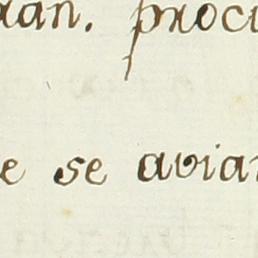 an. procu
e se avian